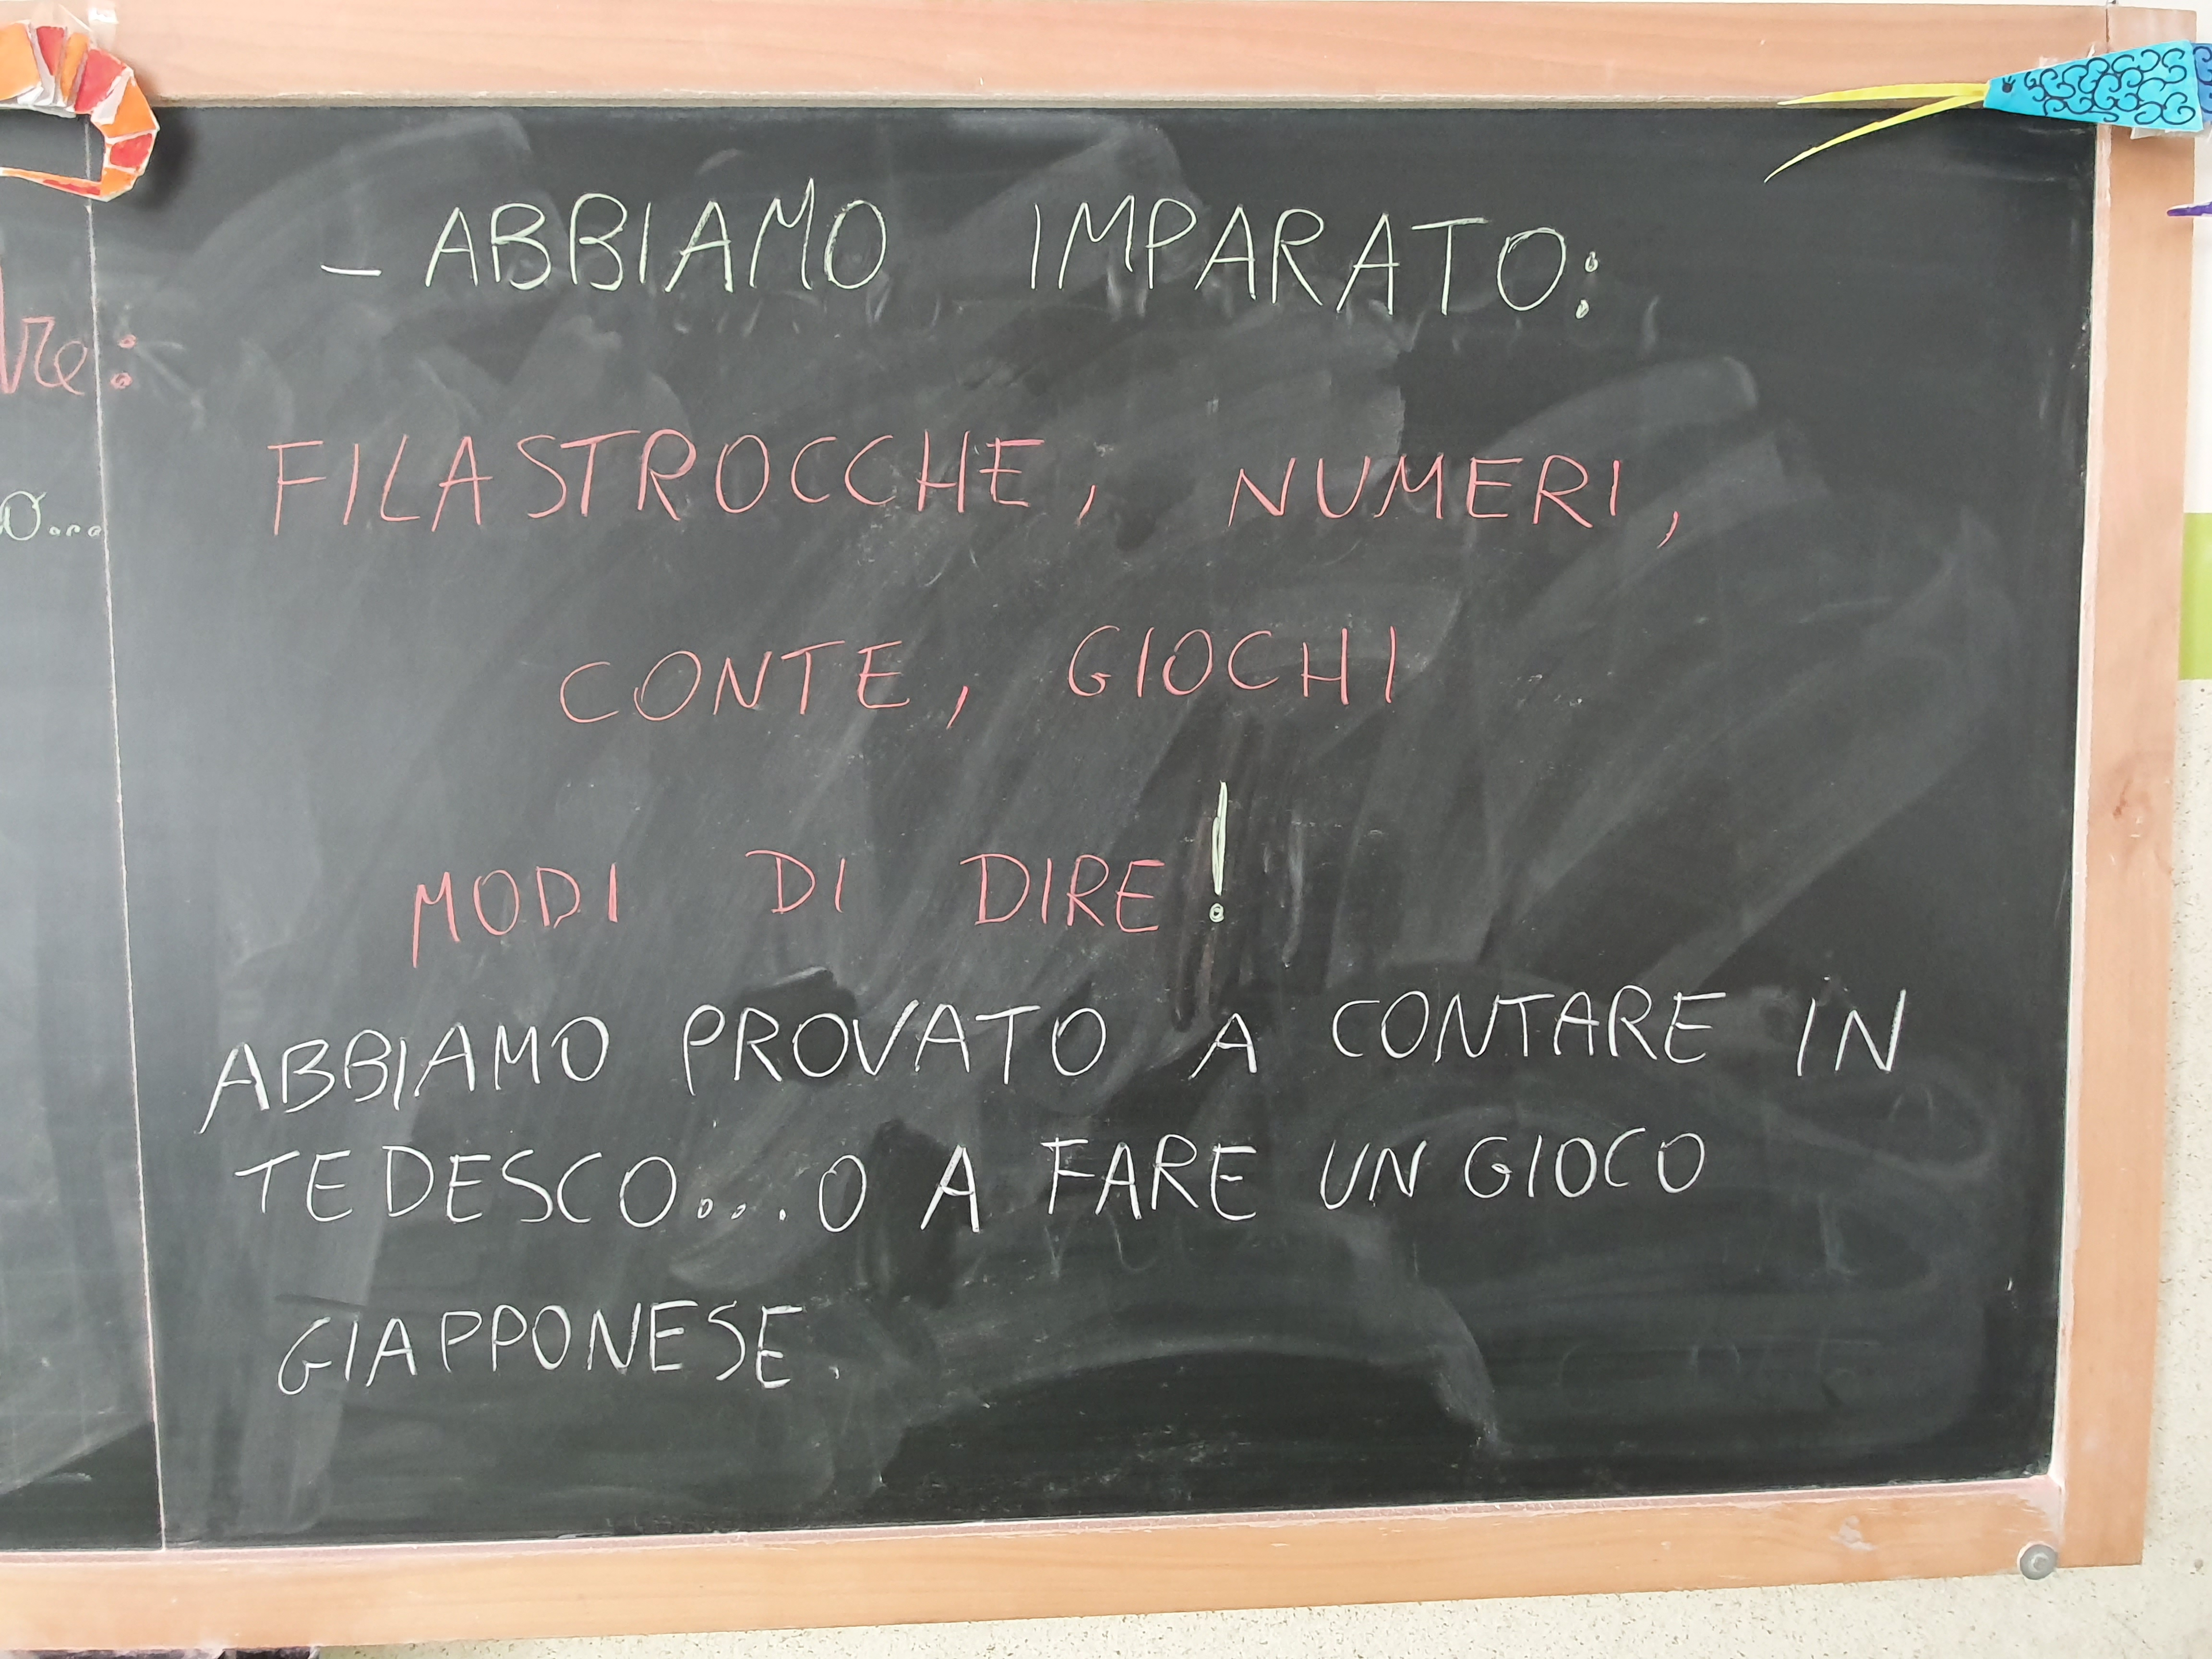 – ABBIAMO IMPARATO:
FILASTROCCHE, NUMERI,
CONTE, GIOCHI
MODI DI DIRE!
ABBIAMO PROVATO A CONTARE IN
TEDESCO...O A FARE UN GIOCO
GIAPPONESE.